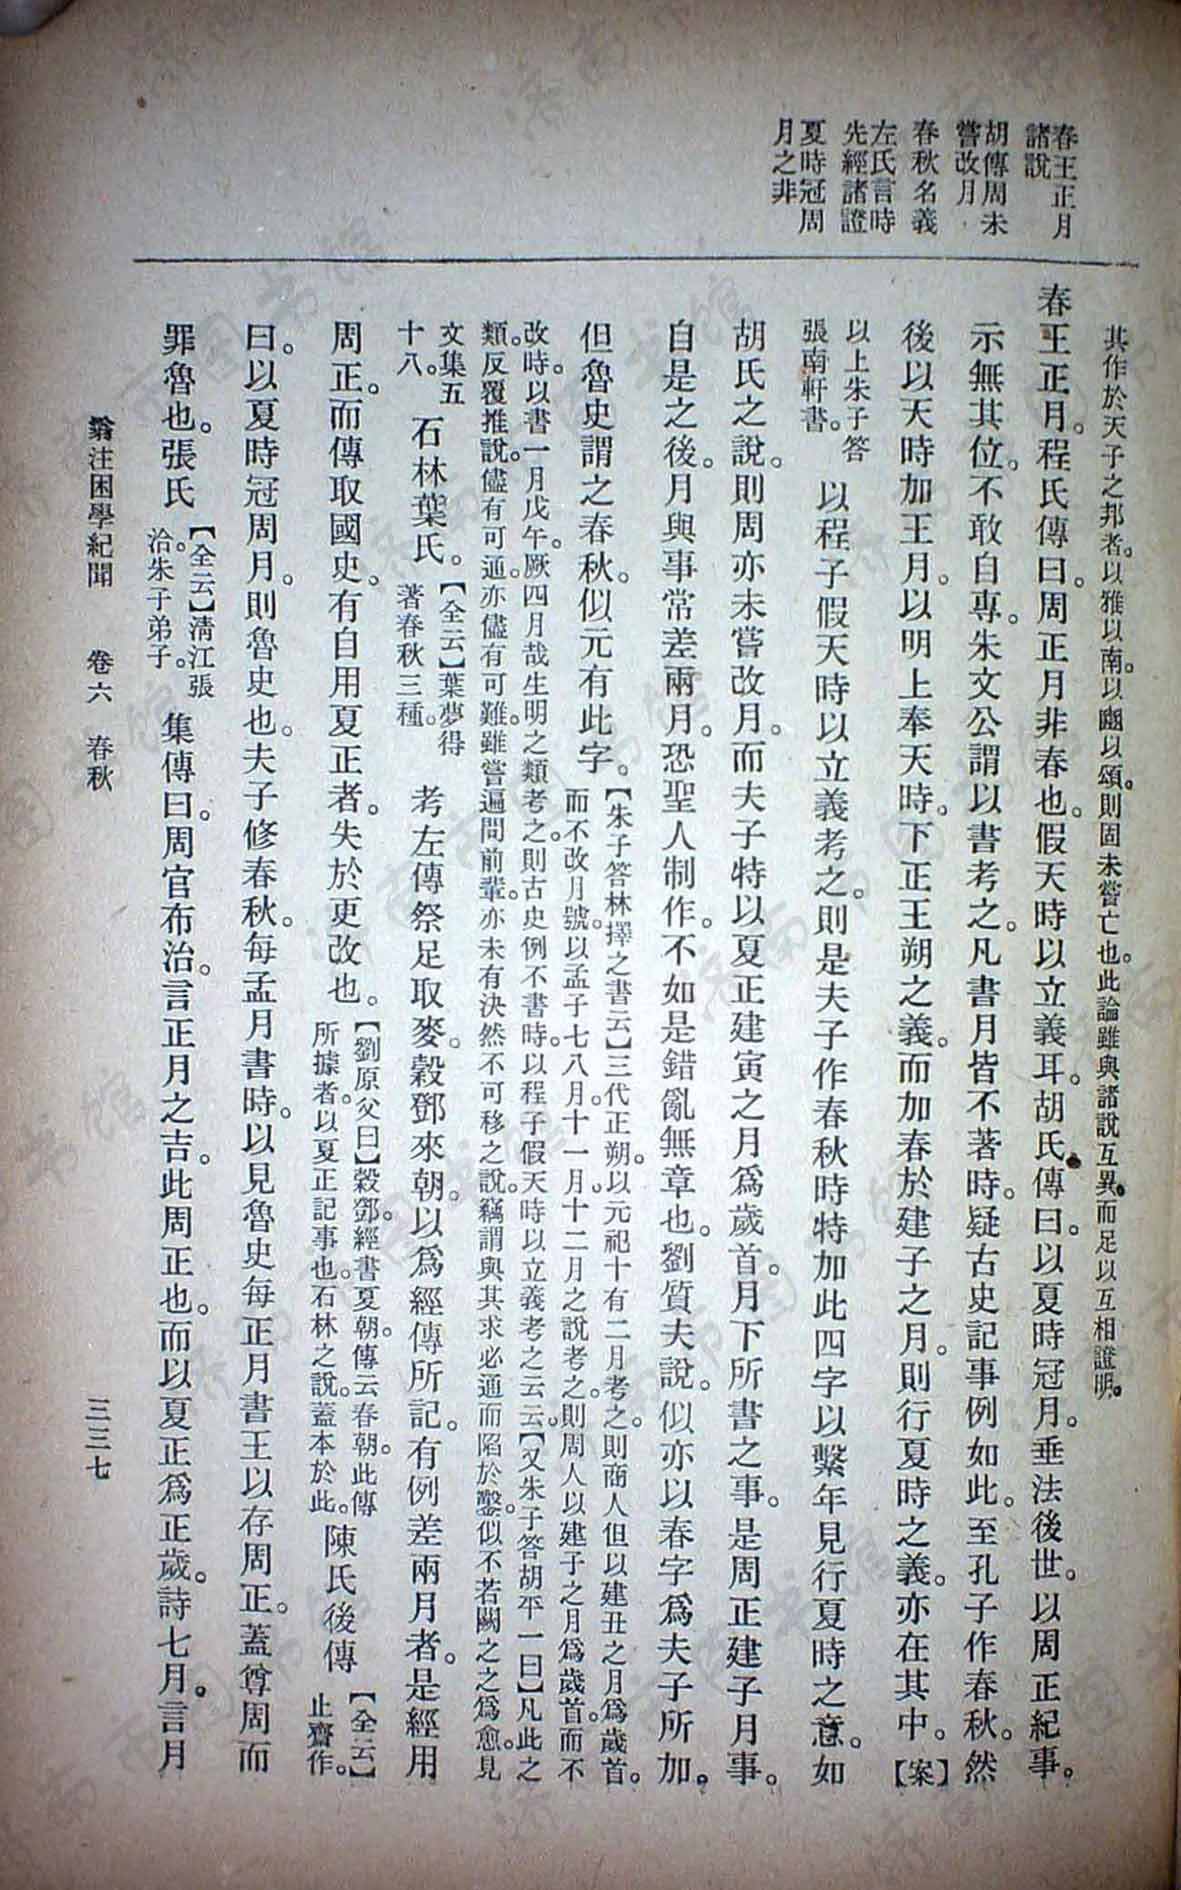 春王正月
諸說
胡傳周未
嘗改月
春秋名義
左氏言時
先經諸證
夏時冠周
月之非
其作於天子之邦者。以雅以南。以豳以頌。則固未嘗亡也。此論雖與諸說互異。而足以互相證明。
春王正月。程氏傳曰。周正月非春也。假天時以立義耳。胡氏傳曰。以夏時冠月。垂法後世。以周正紀事。
示無其位。不敢自專。朱文公謂以書考之。凡書月皆不著時。疑古史記事例如此。至孔子作春秋。然
後以天時加王月。以明上奉天時。下正王朔之義。而加春於建子之月。則行夏時之義。亦在其中。【案】
以上朱子答
張南軒書。
以程子假天時以立義考之。則是夫子作春秋時特加此四字以繫年見行夏時之意。如
胡氏之說。則周亦未嘗改月。而夫子特以夏正建寅之月爲歲首。月下所書之事。是周正建子月事。
自是之後。月與事常差兩月。恐聖人制作。不如是錯亂無章也。劉質夫說。似亦以春字爲夫子所加。
但魯史謂之春秋。似元有此字。
【朱子答林擇之書云】三代正朔。以元祀十有二月考之。則商人但以建丑之月爲歲首。
而不改月號。以孟子七八月。十一月。十二月之說考之。則周人以建子之月爲歲首。而不
改時。以書一月戊午。厥四月哉生明之類考之。則古史例不書時。以程子假天時以立義考之云云。【又朱子答胡平一曰】凡此之
類。反覆推說。儘有可通。亦儘有可難。雖嘗遍問前輩。亦未有決然不可移之說。竊謂與其求必通而陷於鑿。似不若闕之之爲愈。見
文集五
十八。
石林葉氏。
【全云】葉夢得
著春秋三種。
考左傳祭足取麥。穀鄧來朝。以爲經傳所記。有例差兩月者。是經用
周正。而傳取國史。有自用夏正者。失於更改也。
【劉原父曰】穀鄧。經書夏朝。傳云春朝。此傳
所據者。以夏正記事也。石林之說。蓋本於此。
陳氏後傳
【全云】
止齋作。
曰。以夏時冠周月。則魯史也。夫子修春秋。每孟月書時。以見魯史每正月書王以存周正。蓋尊周而
罪魯也。張氏
【全云】淸江張
洽。朱子弟子。
集傳曰。周官布治。言正月之吉。此周正也。而以夏正爲正歲。詩七月。言月
翁注困學紀聞 卷六 春秋 三三七